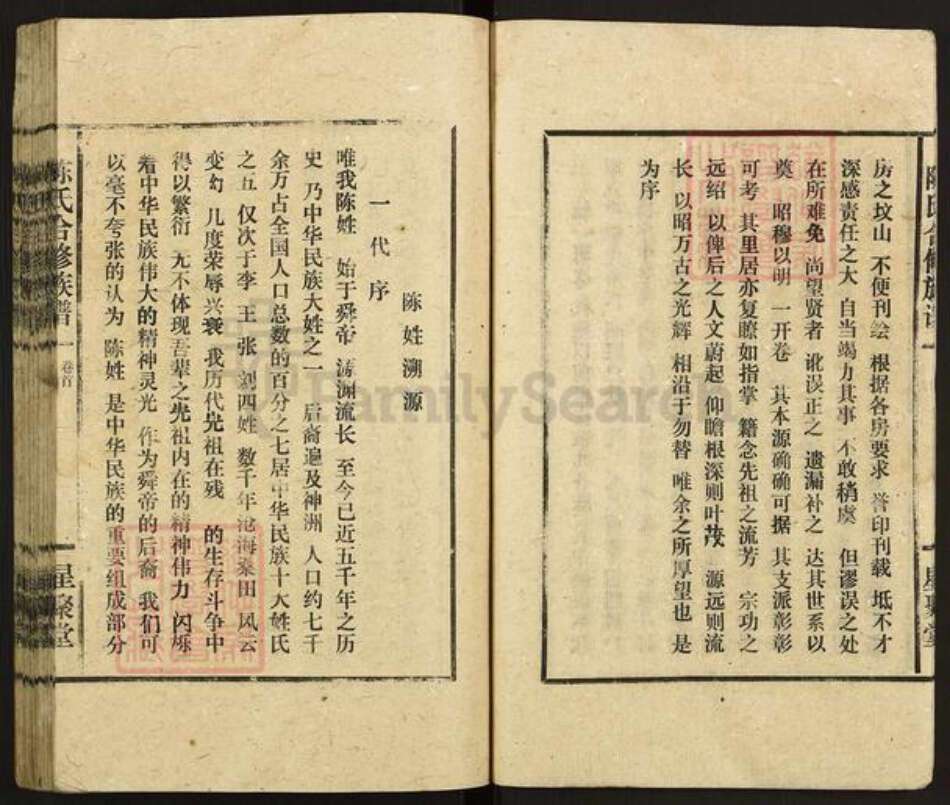 陈氏合修族谱一
星聚堂
房之坟山 不便刊绘 根据各房要求 誊印刊载 坻不才
深感责任之大 自当竭力其事 不敢稍虞 但谬误之处
在所难免 尚望贤者 讹误正之 遗漏补之 达其世系以
奠 昭穆以明 一开卷 其本源确确可据 其支派彰彰
可考 其里居亦复瞭如指掌 籍念先祖之流芳 宗功之
远绍 以俾后之人文蔚起 仰瞻根深则叶茂 源远则流
长 以昭万古之光辉 相沿于勿替 唯余之所厚望也 是
为序
陈姓溯源
一代序
唯我陈姓 始于舜帝 源渊流长 至今已近五千年之历
史 乃中华民族大姓之一 后裔遍及神洲 人口约七千
余万占全国人口总数的百分之七居中华民族十大姓氏
之五 仅次于李 王 张 刘四姓 数千年沧海桑田 风云
变幻 几度荣辱兴衰 我历代先祖在残 的生存斗争中
得以繁衍 无不体现吾辈之先祖内在的精神伟力 闪烁
着中华民族伟大的精神灵光 作为舜帝的后裔 我们可
以毫不夸张的认为 陈姓 是中华民族的重要组成部分
陈氏合修族谱一 卷首
星聚堂
FamilySearch